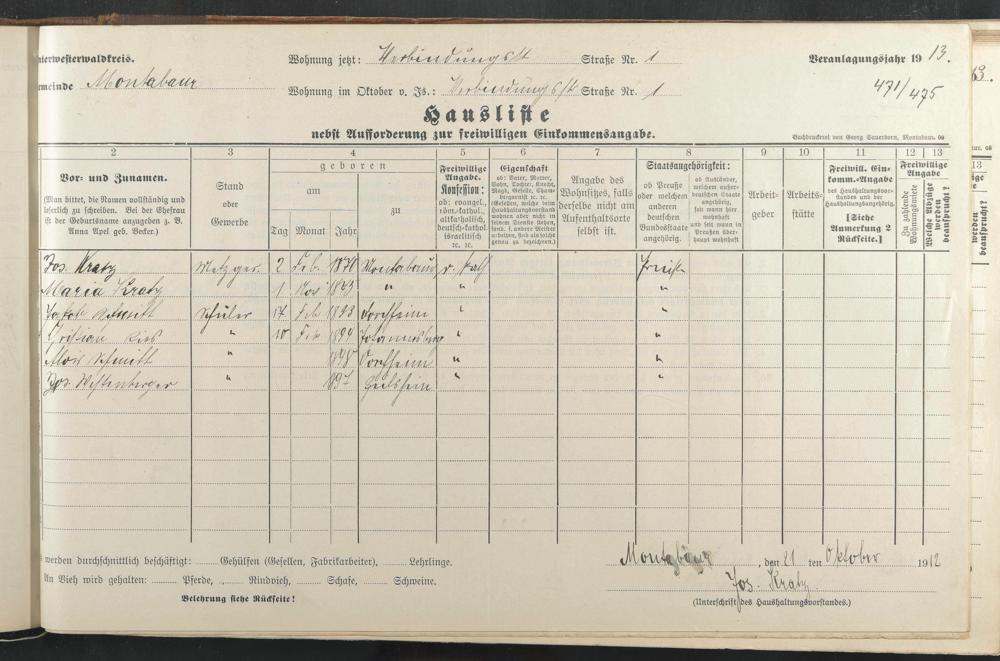 nterwesterwaldkreis.
Wohnung jetzt: Verbindungsst Straße Nr. 1
Veranlagungsjahr 1913.
emeinde Montabaur
Wohnung im Oktober v. Js.: Verbindungsst Straße Nr. 1
471/475
Hausliste
nebst Aufforderung zur freiwilligen Einkommensangabe.
Buchdruckerei von Georg Sauerborn, Montabaur.
2 3 4 5 6 7 8 9 10 11 12 13
Vor- und Zunamen.
(Man bittet, die Namen vollständig und
leserlich zu schreiben. Bei der Ehefrau
ist der Geburtsname anzugeben z. B.
Anna Apel geb. Becker.)
Stand
oder
Gewerbe
geboren
am
zu
Tag Monat Jahr
Freiwillige
Angabe.
Konfession:
ob: evangel.,
röm.-kathol.,
altkatholisch,
deutsch-kathol.
israelitisch
ic. ic.
Eigenschaft
ob: Vater, Mutter,
Sohn, Tochter, Knecht,
Magd, Geselle, Cham-
bergarnist ic. ic.
Angabe des
Wohnsitzes, falls
derselbe nicht am
Aufenthaltsorte
selbst ist.
Staatsangehörigkeit:
ob Preuße
oder welchem
anderen
deutschen
Bundesstaate
angehörig.
ob Ausländer,
welchem außer-
deutschen Staate
angehörig,
seit wann hier
wohnhaft
und seit wann in
Preußen über-
haupt wohnhaft
Arbeit-
geber
Arbeits-
stätte
Freiwill. Ein-
komm.-Angabe
des Haushaltungsvor-
standes und der
Haushaltungsangehörig.
[Siehe
Anmerkung 2
Rückseite.]
Freiwillige
Angabe
Zu zahlende
Wohnungsmiete
Welche Abzüge
werden
beansprucht?
Jos. Kratz Metzger 2 Feb. 1871 Montabaur r. kath Preuße
Maria Kratz 1 Nov 1843 " " "
Jakob Schmitt Schüler 17 Feb 1893 Dorchheim " "
Christian " 10 Feb 1894 Johannisberg " "
Alois Schmitt " Dorchheim " "
Jos. Westenberger " 1897 " "
werden durchschnittlich beschäftigt: Gehülfen (Gesellen, Fabrikarbeiter), Lehrlinge.
An Vieh wird gehalten: Pferde, Rindvieh, Schafe, Schweine.
Belehrung siehe Rückseite!
Montabaur, den 21 ten Oktober 1912
Jos. Kratz
(Unterschrift des Haushaltungsvorstandes.)